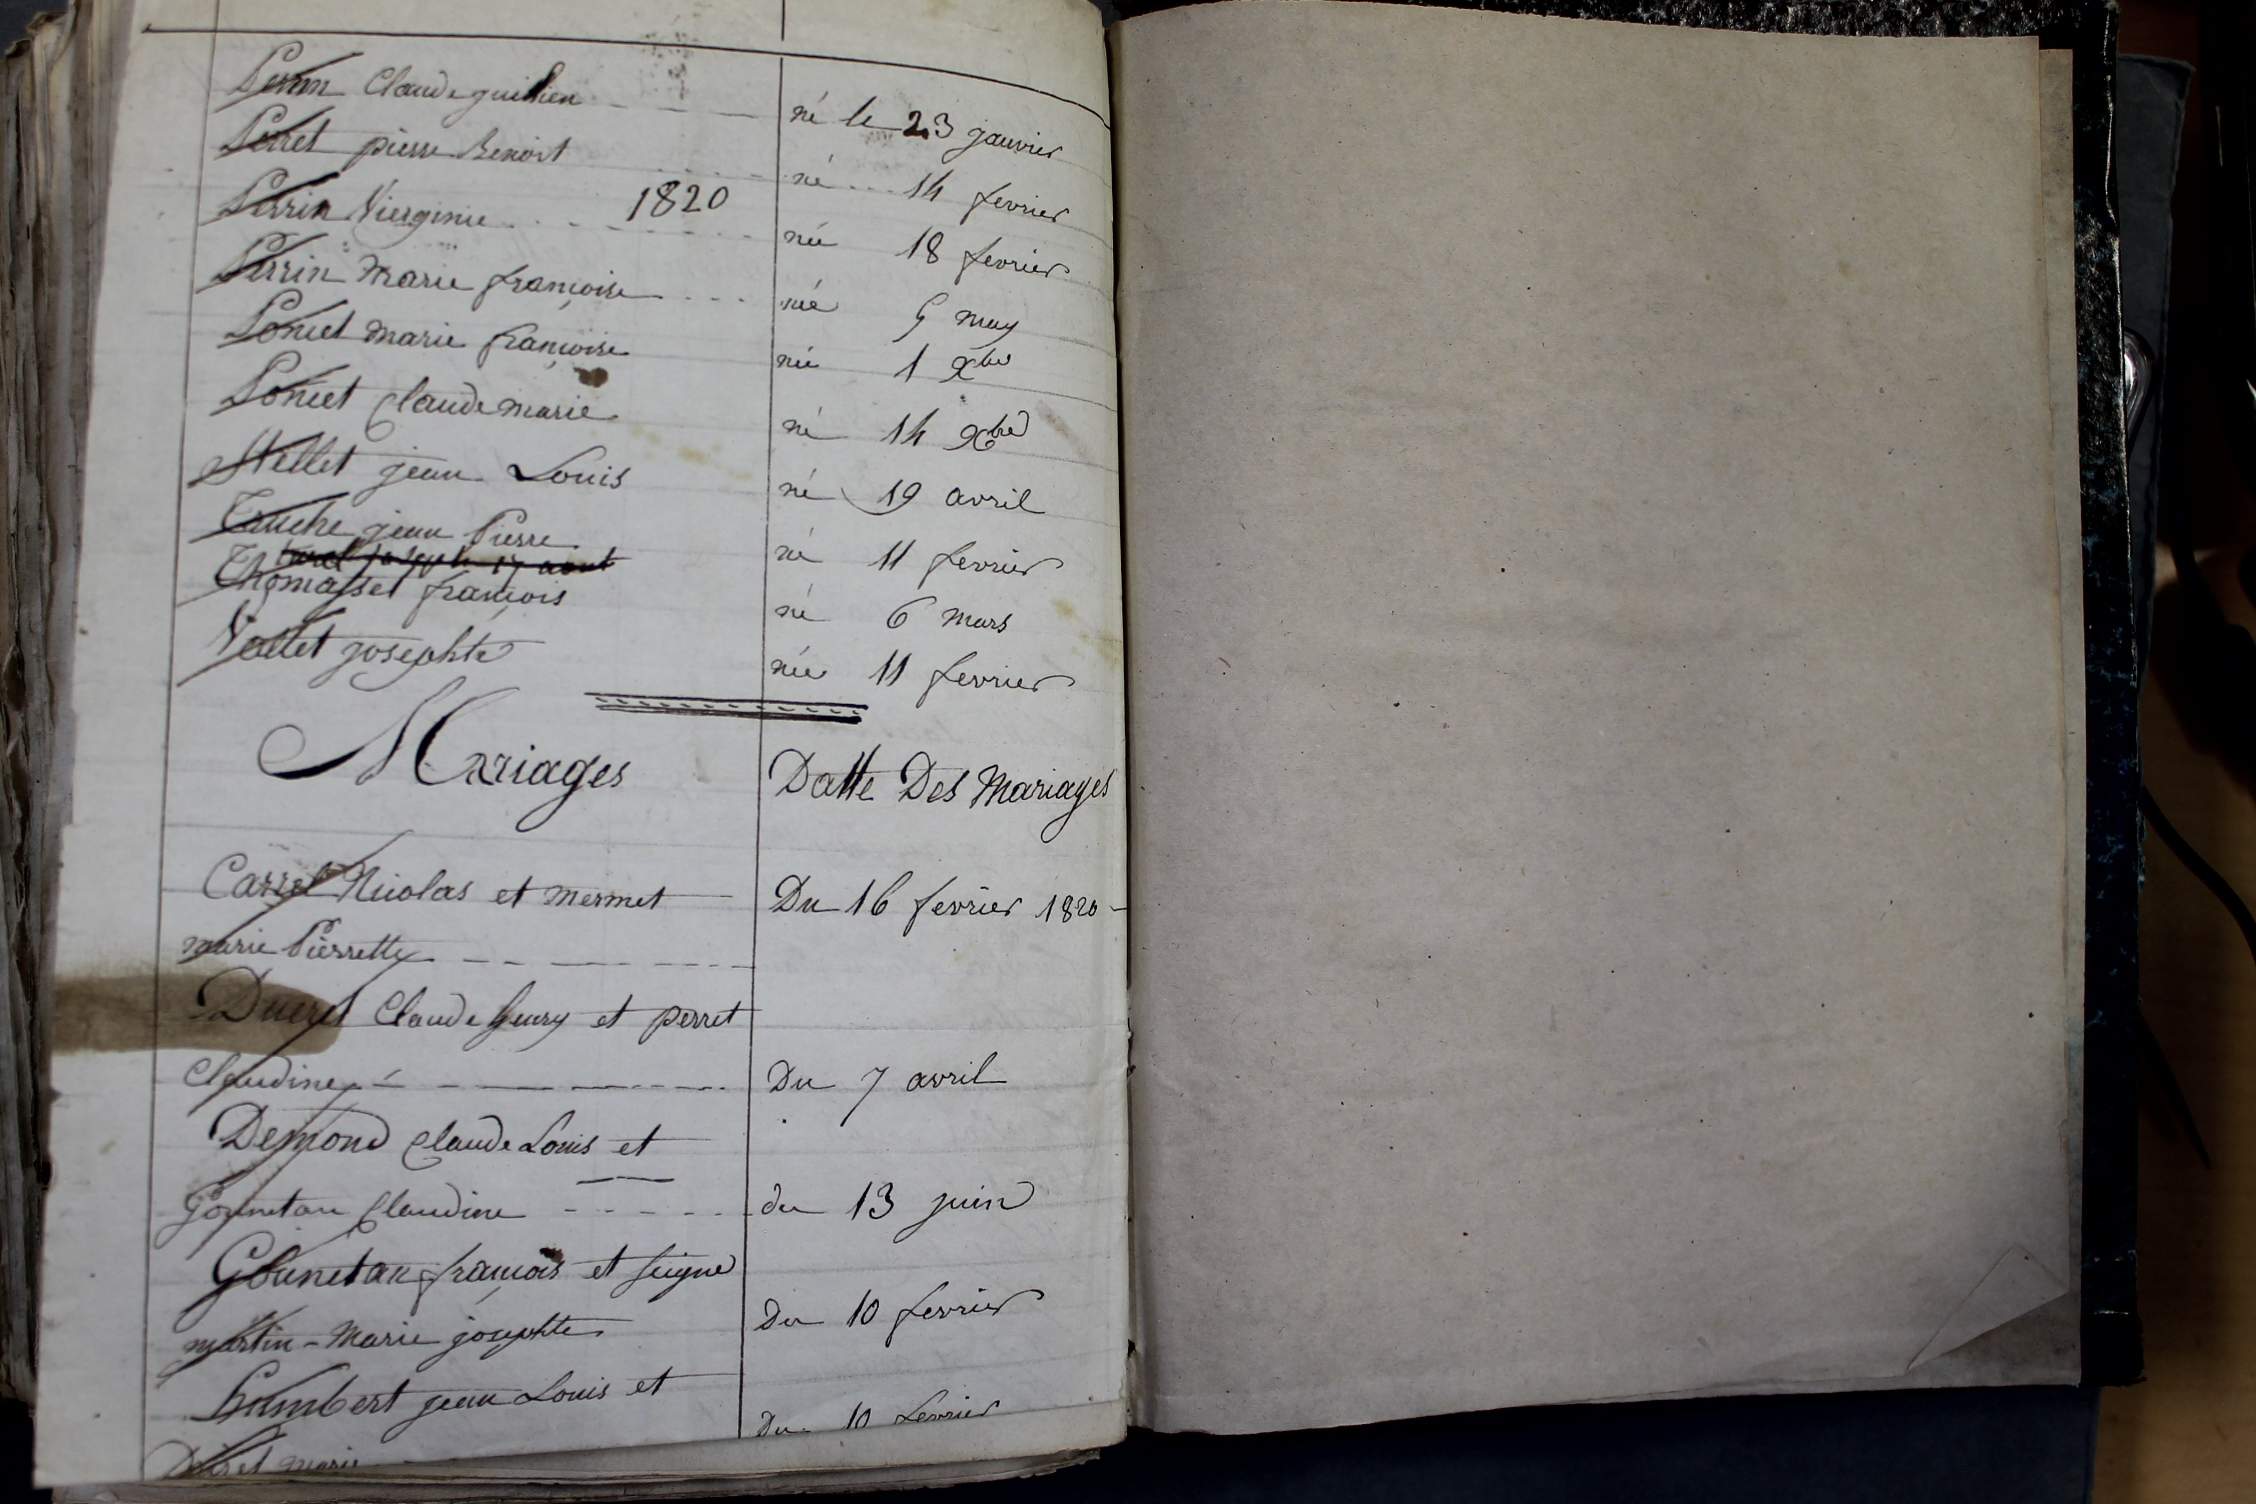 Perrin Claude guillien né le 23 janvier
Perret pierre Benoit né 14 fevrier
Perrin Vierginie 1820 née 18 fevrier
Perrin Marie françoise née 9 may
Poncet marie françoise née 1 Xbre
Poncet Claude marie né 14 Xbre
Mellet jean Louis né 19 avril
Truche jean Pierre né 11 fevrier
joseph 17 aout
Thomasset françois né 6 mars
Vallet josephte née 11 fevrier
Mariages Datte Des Mariages
Carrel Nicolas et mermet Du 16 fevrier 1820
marie Pierrette
Ducret Claude henry et perret
Claudine Du 7 avril
Demond Claude Louis et
Gounetan Claudine du 13 juin
Gounetan françois et Seigne
martin - Marie josephte Du 10 fevrier
humbert jean Louis et Du 10 fevrier
Duret marie